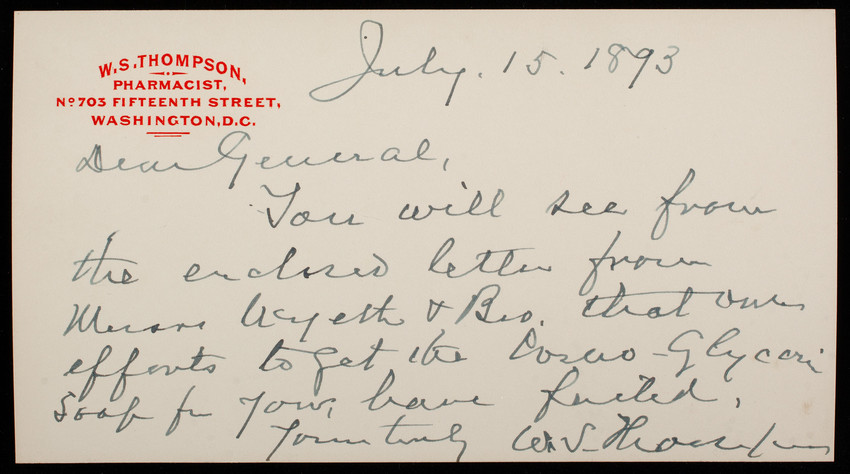 W.S. THOMPSON,
PHARMACIST,
No 703 FIFTEENTH STREET,
WASHINGTON, D.C.
July. 15. 1893
Dear General,
You will see from
the enclosed letter from
Messrs Wyeth & Bro. that our
efforts to get the -Glycerin
Soap for you, have failed.
Yours truly W.S. Thompson